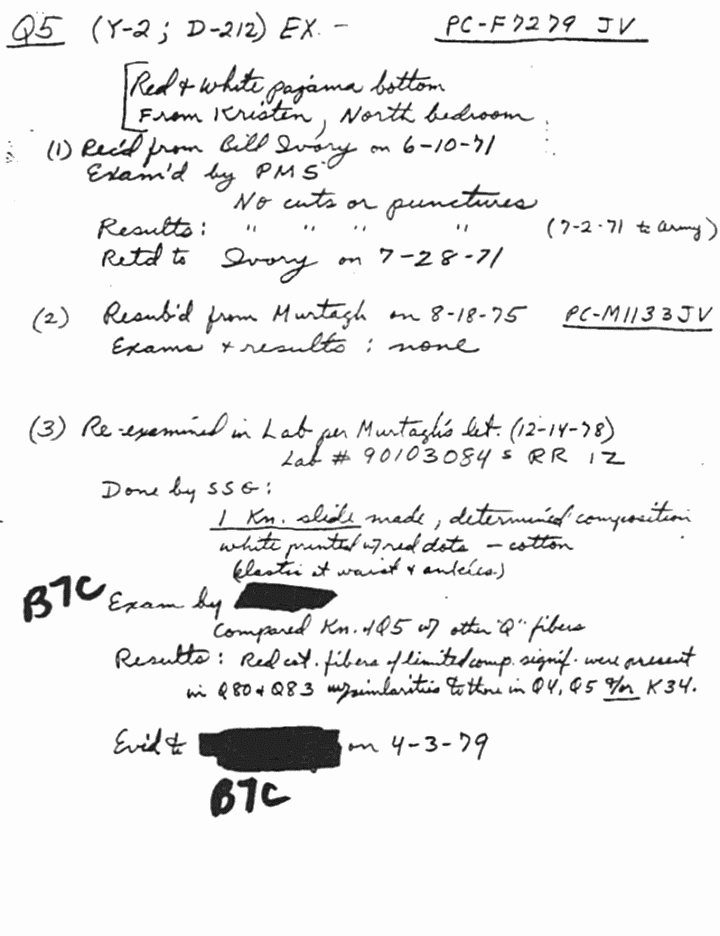 Q5 (Y-2; D-212) EX. - PC-F7279 JV
Red + White pajama bottom
From Kristen, North bedroom
(1) Rec'd from Bill Ivory on 6-10-71
Exam'd by PMS
No cuts or punctures
Results: " " " " (7-2-71 to Army)
Retd to Ivory on 7-28-71
(2) Resub'd from Murtagh on 8-18-75 PC-M1133JV
Exams + results: none
(3) Re-examined in Lab per Murtagh's let. (12-14-78)
Lab # 90103084 S RR IZ
Done by SSG:
1 Kn. slide made, determined composition
white printed w/red dots - cotton
(elastic at waist & ankles)
B7C Exam by
Compared Kn. of Q5 w/ other "Q" fibers
Results: Red cot. fibers of limited comp. signif. were present
in Q80 + Q83 w/similarities to those in Q4, Q5 &/or K34.
Evid to on 4-3-79
B7C